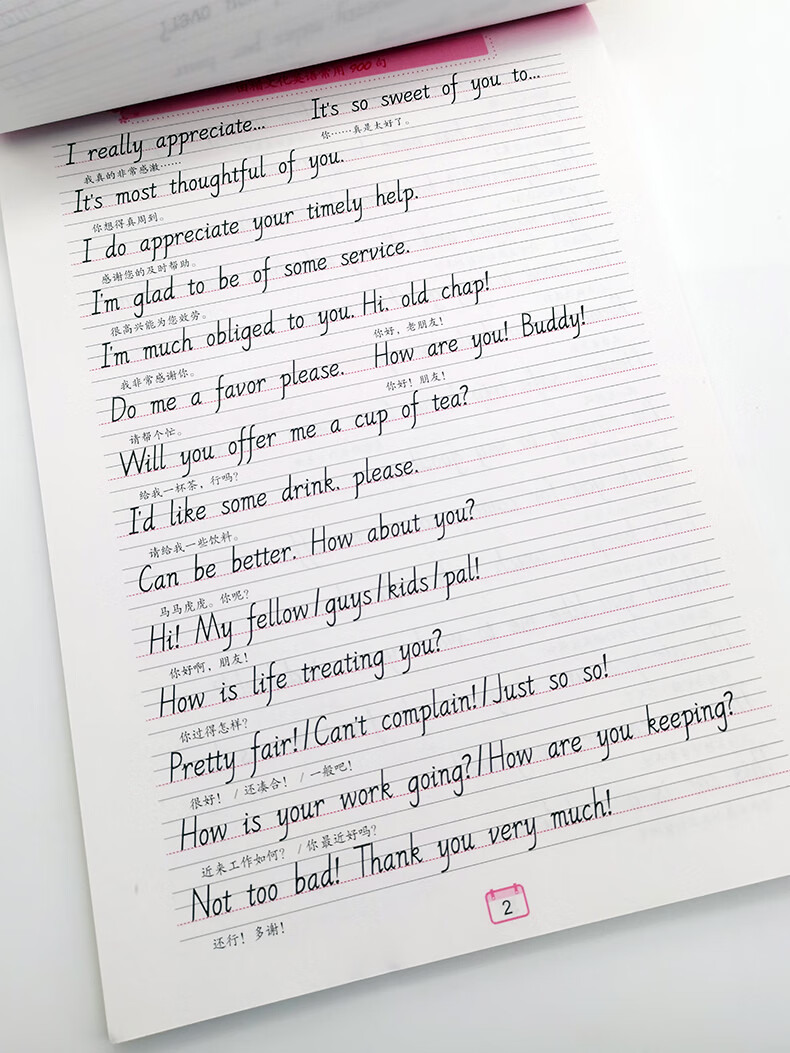 常用900句
I really appreciate... It's so sweet of you to...
我真的非常感激…… 你……真是太好了。
It's most thoughtful of you.
你想得真周到。
I do appreciate your timely help.
感谢您的及时帮助。
I'm glad to be of some service.
很高兴能为您效劳。
I'm much obliged to you. Hi, old chap!
我非常感谢你。 你好，老朋友！
Do me a favor please. How are you! Buddy!
请帮个忙。 你好！朋友！
Will you offer me a cup of tea?
给我一杯茶，行吗？
I'd like some drink, please.
请给我一些饮料。
Can be better. How about you?
马马虎虎。你呢？
Hi! My fellow/guys/kids/pal!
你好啊，朋友！
How is life treating you?
你过得怎样？
Pretty fair!/Can't complain!/Just so so!
很好！/还凑合！/一般吧！
How is your work going?/How are you keeping?
近来工作如何？/你最近好吗？
Not too bad! Thank you very much!
还行！多谢！
2